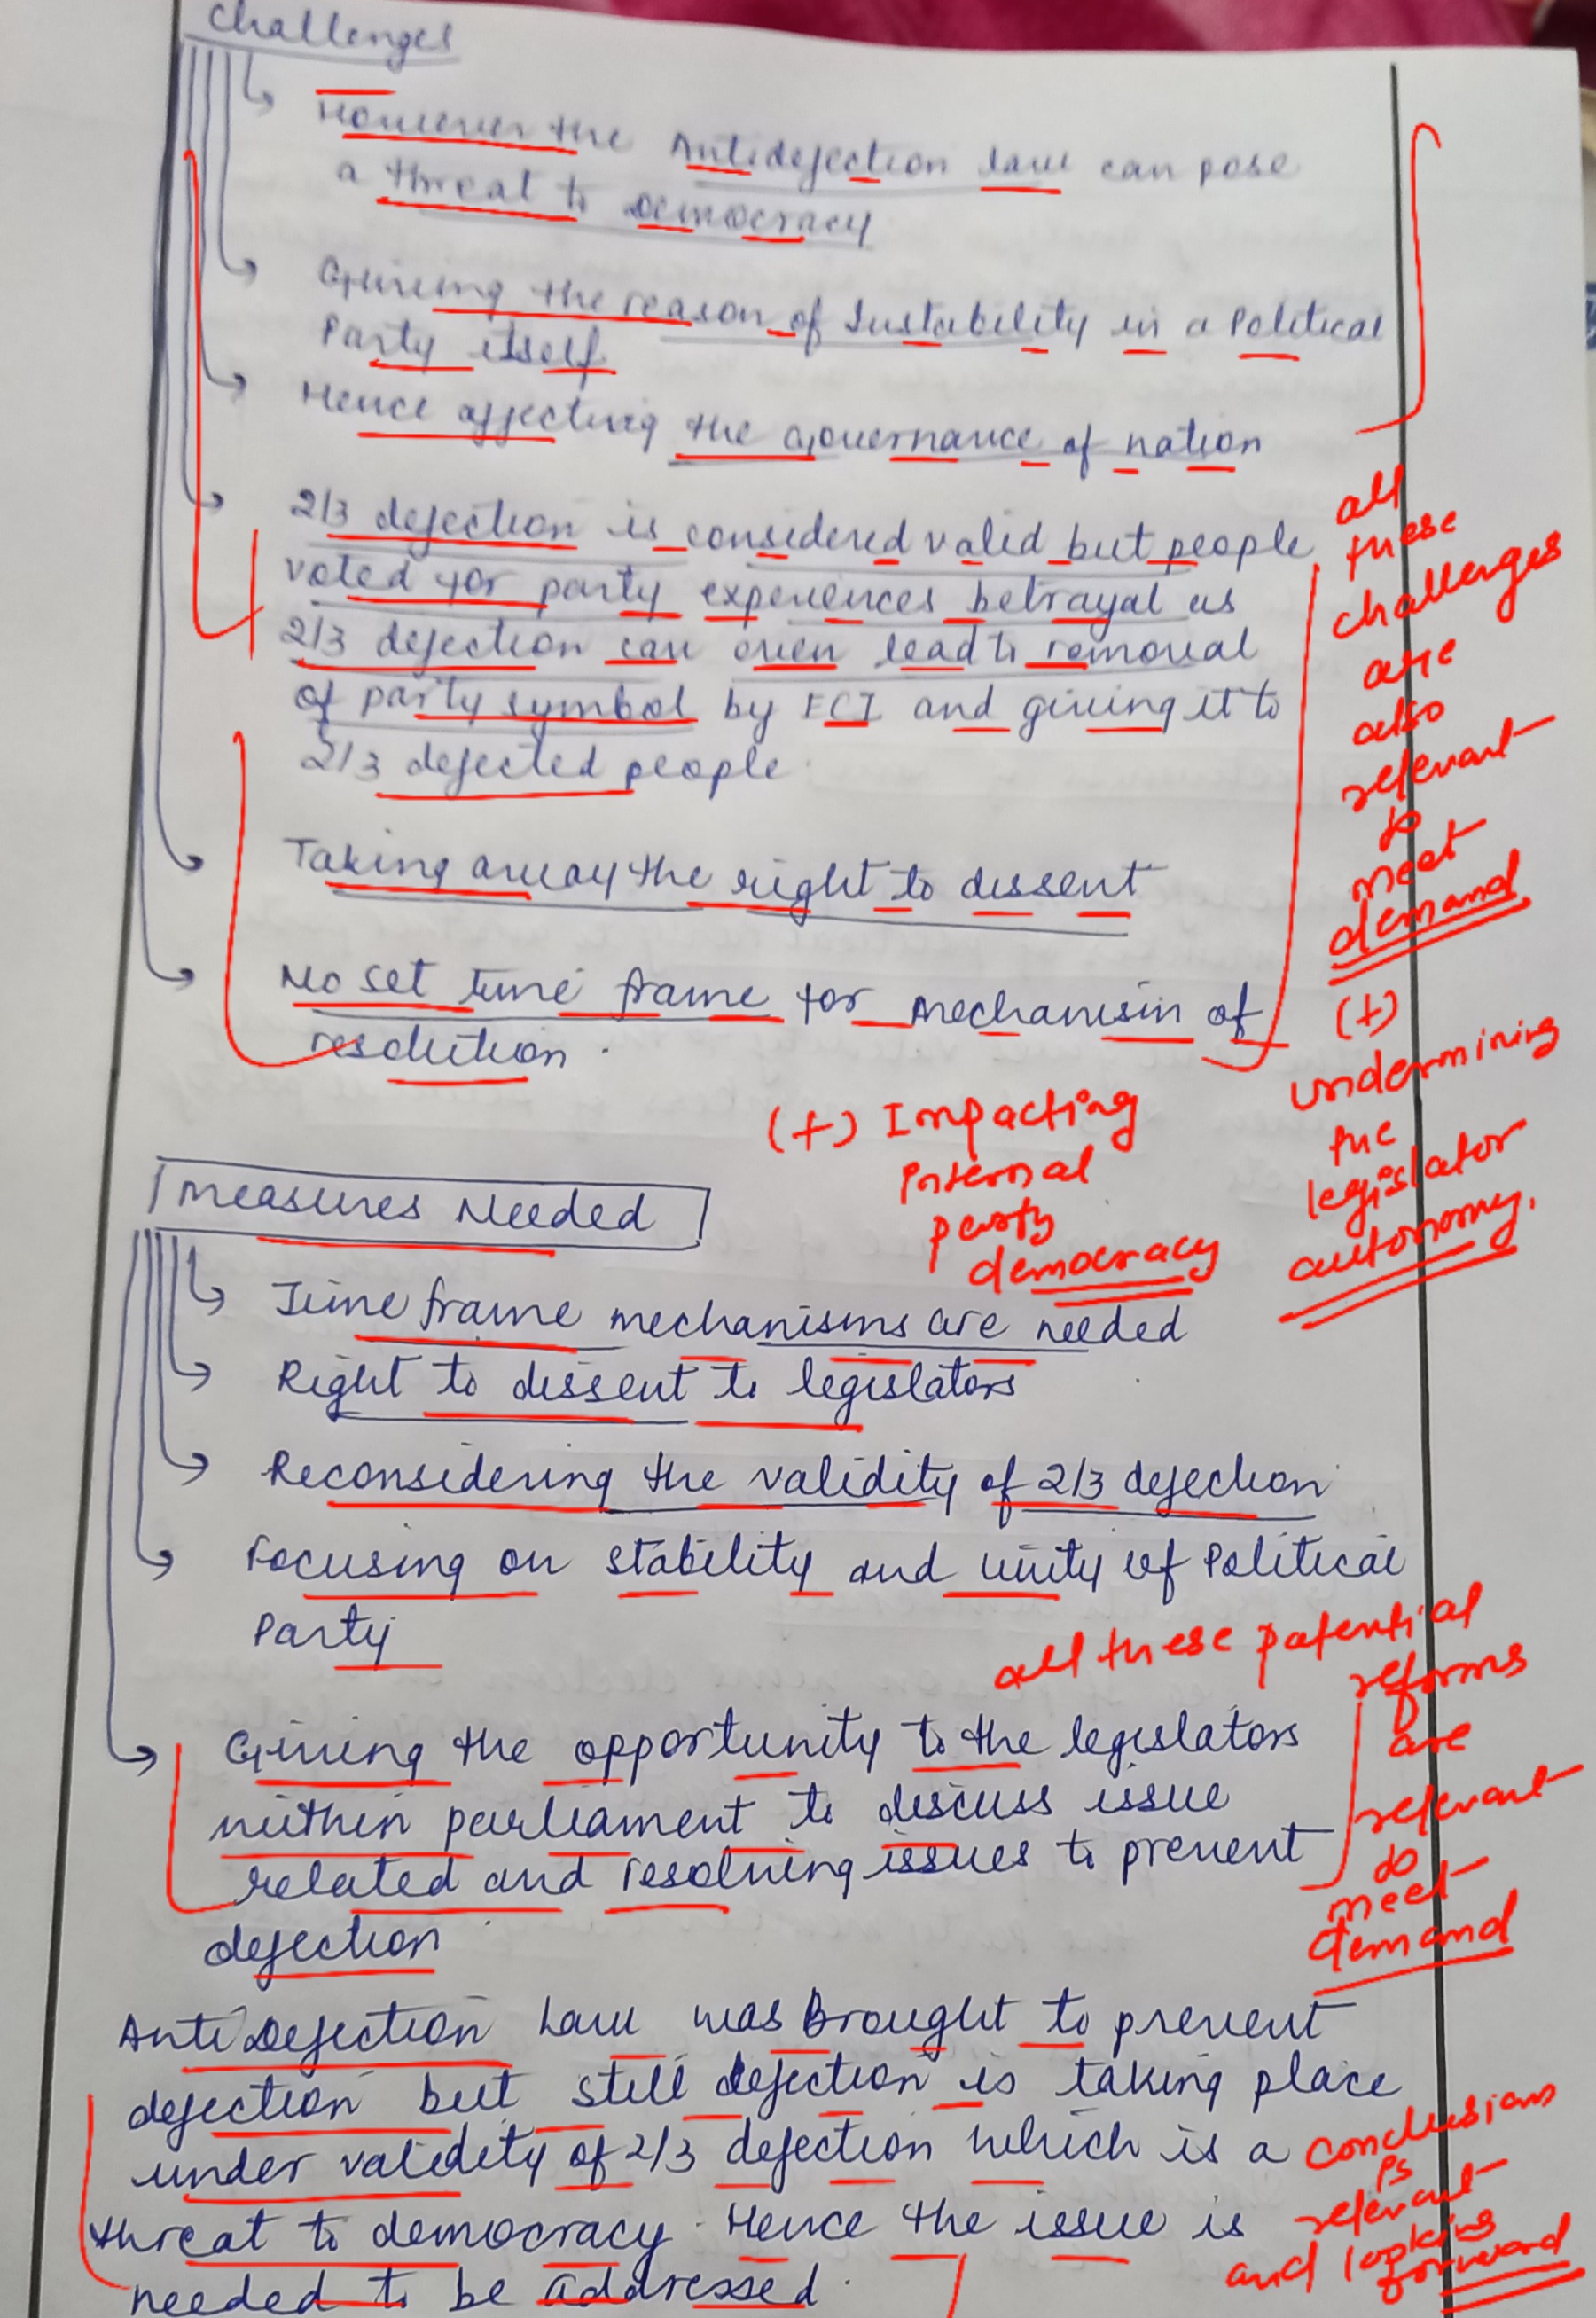 Challenges
However the Antidefection law can pose
a threat to Democracy
Giving the reason of Instability in a Political
Party itself
Hence affecting the Governance of nation
2/3 defection is considered valid but people
voted for party experiences betrayal as
2/3 defection can even lead to removal
of party symbol by ECI and giving it to
2/3 defected people
Taking away the right to dissent
No set time frame for mechanism of
resolution.
all
these
challenges
are
also
relevant
to
meet
demand
(+)
undermining
the
legislator
autonomy.
(+) Impacting
internal
party
democracy
Measures Needed
Time frame mechanisms are needed
Right to dissent to legislators
Reconsidering the validity of 2/3 defection
Focusing on stability and unity of Political
Party
Giving the opportunity to the legislators
within parliament to discuss issue
related and resolving issues to prevent
defection
all these potential
reforms
are
relevant
to
meet
demand
Anti Defection Law was Brought to prevent
defection but still defection is taking place
under validity of 2/3 defection which is a
threat to democracy. Hence the issue is
needed to be addressed.
conclusions
is
relevant
and looking
forward